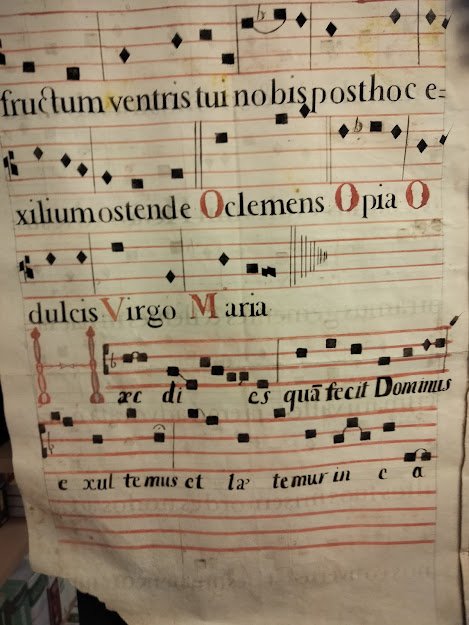 fructum ventris tui nobis post hoc e=
xilium ostende O clemens O pia O
dulcis Virgo Maria
Hæc di es quā fecit Dominus
e xul temus et læ temur in e a